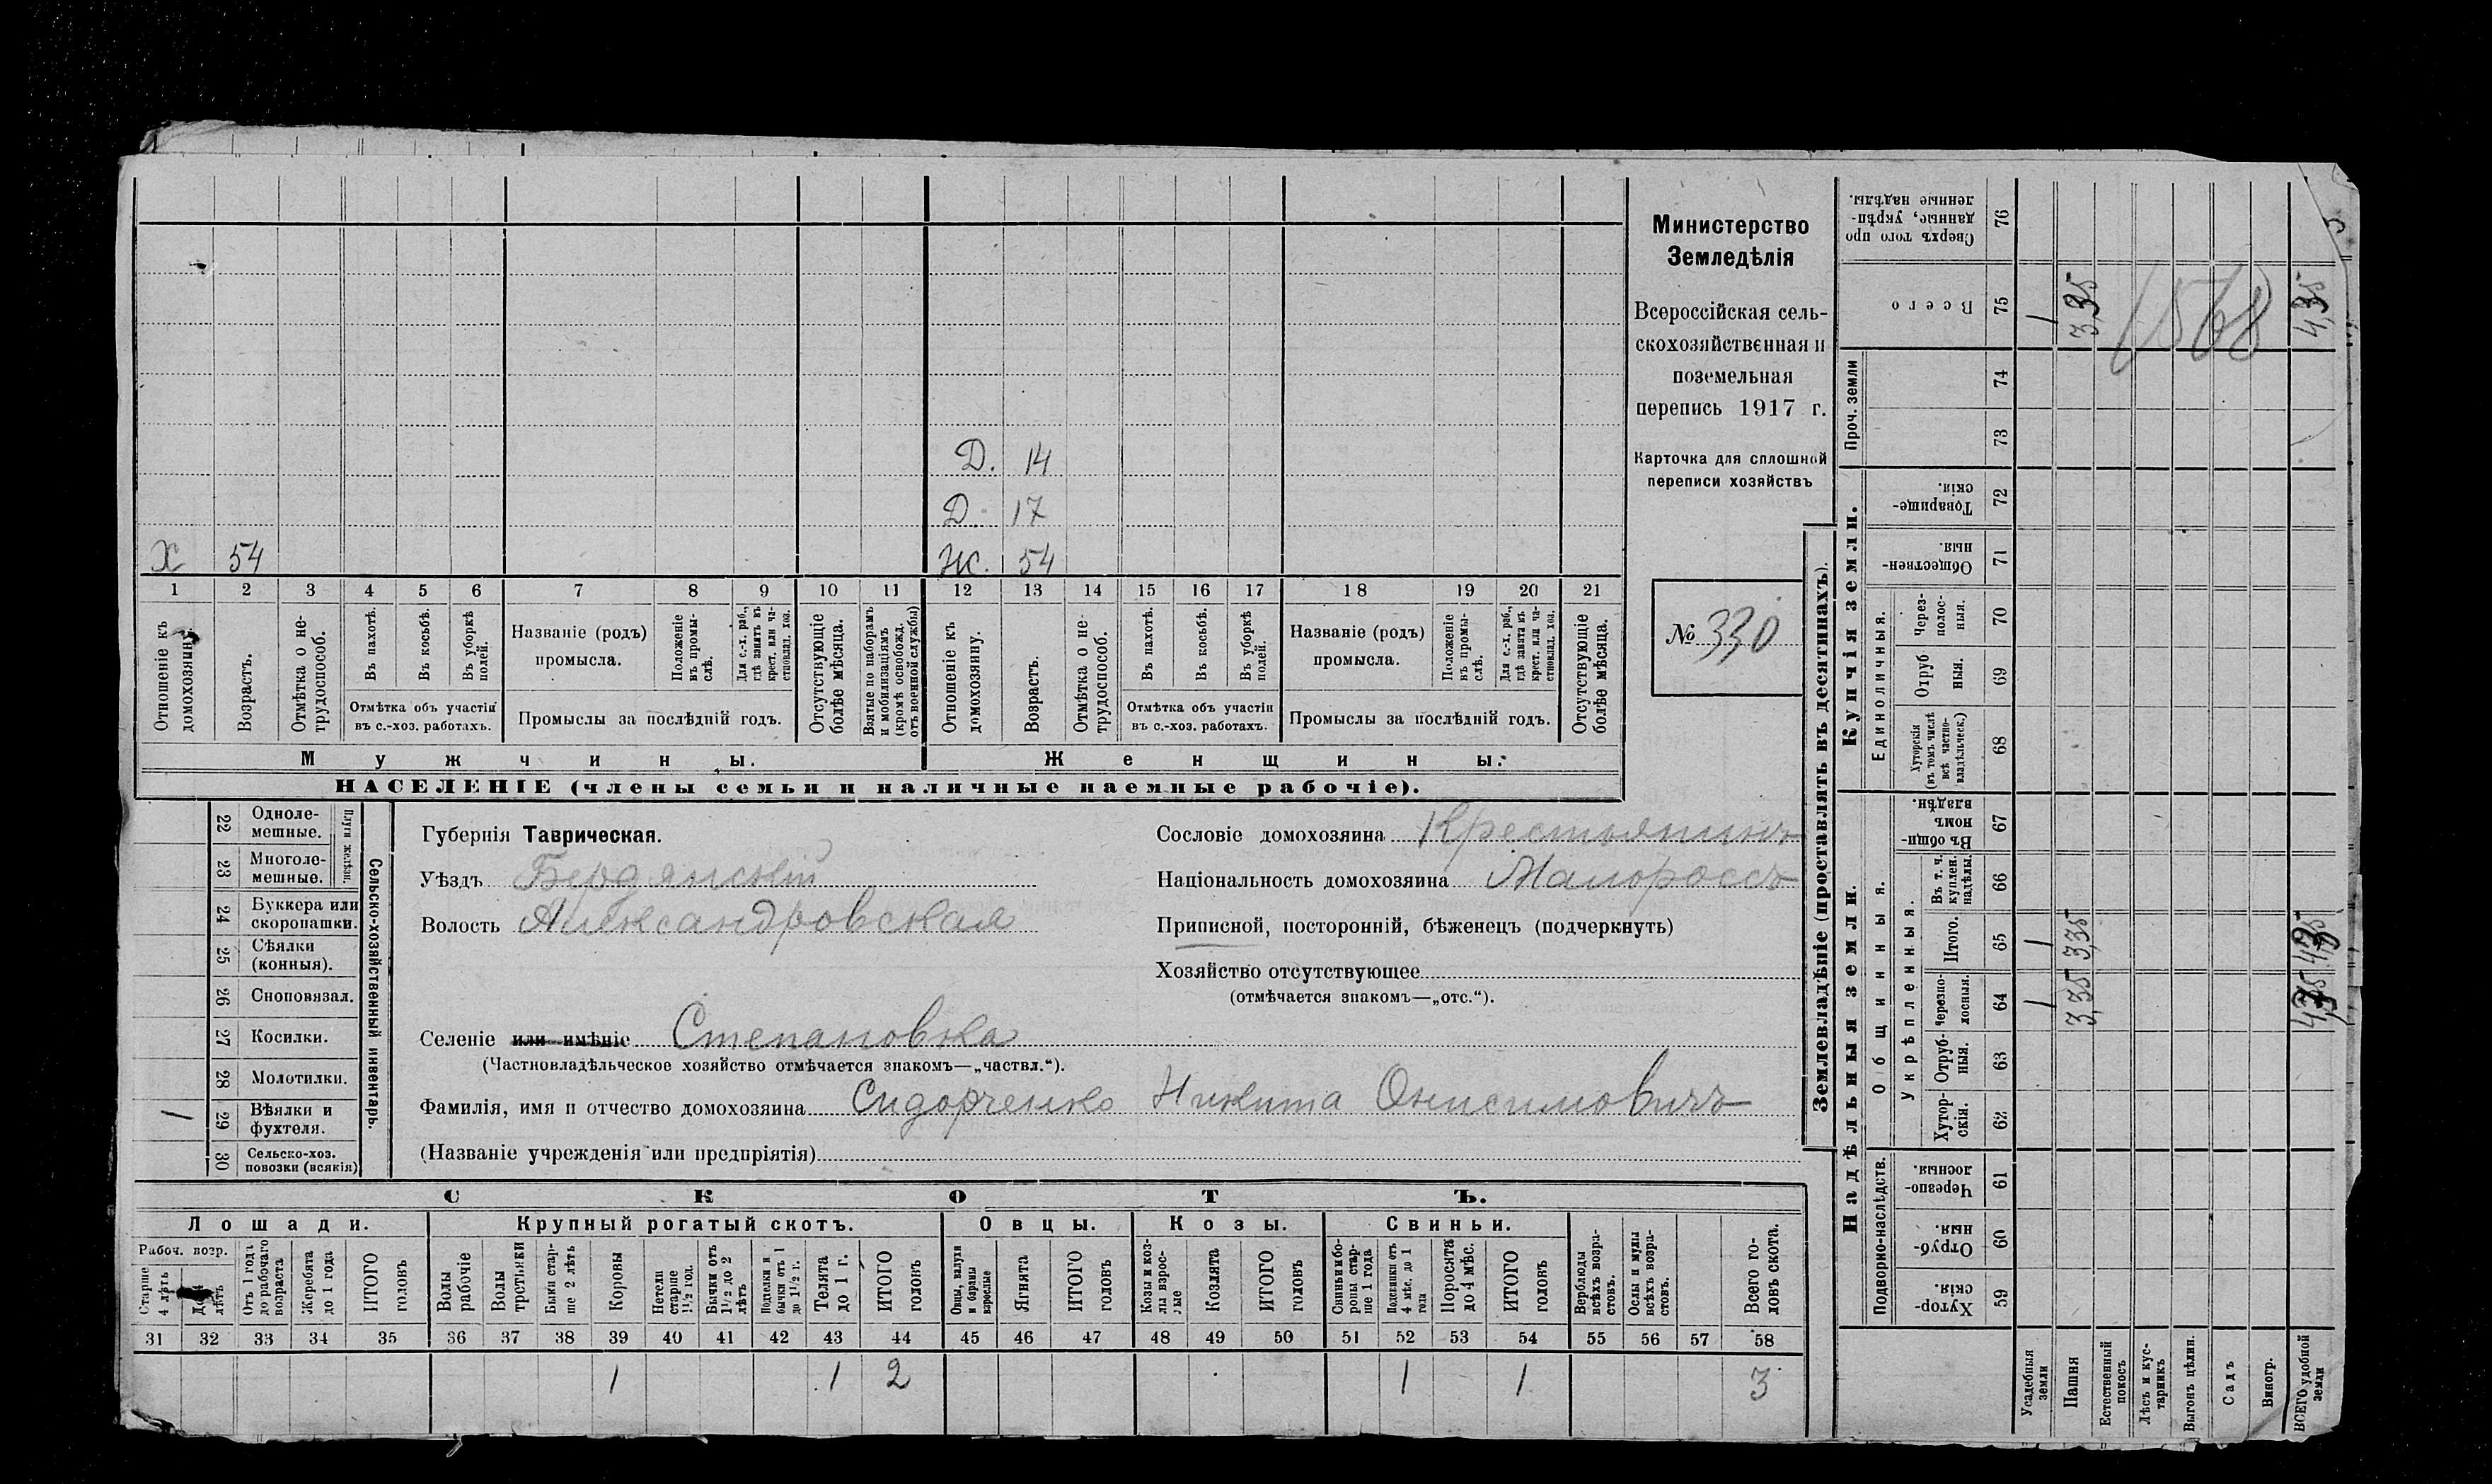 Министерство
Земледѣлія
Всероссійская сель-
скохозяйственная и
поземельная
перепись 1917 г.
Карточка для сплошной
переписи хозяйствъ
№ 330
Д. 14
Д. 17
Х 54
Ж. 54
1 2 3 4 5 6 7 8 9 10 11 12 13 14 15 16 17 18 19 20 21
Отношеніе къ домохозяину.
Возрастъ.
Отмѣтка о не-трудоспособ.
Въ пахотѣ.
Въ косьбѣ.
Въ уборкѣ полей.
Отмѣтка объ участіи
въ с.-хоз. работахъ.
Названіе (родъ)
промысла.
Положеніе въ промы-слѣ.
Для с.-х. раб., гдѣ занятъ въ крест. или ча-стновлад. хоз.
Промыслы за послѣдній годъ.
Отсутствующіе болѣе мѣсяца.
Взятые по наборамъ и мобилизаціямъ (кромѣ освобожд. отъ военной службы)
Отношеніе къ домохозяину.
Возрастъ.
Отмѣтка о не-трудоспособ.
Въ пахотѣ.
Въ косьбѣ.
Въ уборкѣ полей.
Отмѣтка объ участіи
въ с.-хоз. работахъ.
Названіе (родъ)
промысла.
Положеніе въ промы-слѣ.
Для с.-х. раб., гдѣ занята въ крест. или ча-стновлад. хоз.
Промыслы за послѣдній годъ.
Отсутствующіе болѣе мѣсяца.
Мужчины.
Женщины.
НАСЕЛЕНІЕ (члены семьи и наличные наемные рабочіе).
Сельско-хозяйственный инвентарь.
Плуги желѣзн.
22 Одноле-мешные.
23 Многоле-мешные.
24 Буккера или скоропашки.
25 Сѣялки (конныя).
26 Сноповязал.
27 Косилки.
28 Молотилки.
1 29 Вѣялки и фухтеля.
30 Сельско-хоз. повозки (всякія)
Губернія Таврическая.
Уѣздъ Бердянскій
Волость Александровская
Сословіе домохозяина Крестьянинъ
Національность домохозяина Малороссъ
Приписной, посторонній, бѣженецъ (подчеркнуть)
Хозяйство отсутствующее
(отмѣчается знакомъ—„отс.“).
Селеніе или имѣніе Степановка
(Частновладѣльческое хозяйство отмѣчается знакомъ—„частвл.“).
Фамилія, имя и отчество домохозяина Сидорченко Никита Онисимовичъ
(Названіе учрежденія или предпріятія)
СКОТЪ.
Лошади. Крупный рогатый скотъ. Овцы. Козы. Свиньи.
Рабоч. возр.
Старше 4 лѣтъ
До 4 лѣтъ
Отъ 1 года до рабочаго возраста
Жеребята до 1 года
ИТОГО головъ
Волы рабочіе
Волы третьяки
Быки стар-ше 2 лѣтъ
Коровы
Нетели старше 1½ год.
Бычки отъ 1½ до 2 лѣтъ
Подтелки и бычки отъ 1 до 1½ г.
Телята до 1 г.
ИТОГО головъ
Овцы, валухи и бараны взрослые
Ягнята
ИТОГО головъ
Козы и коз-лы взрос-лые
Козлята
ИТОГО головъ
Свиньи и бо-ровы стар-ше 1 года
Подсвинки отъ 4 мѣс. до 1 года
Поросята до 4 мѣс.
ИТОГО головъ
Верблюды всѣхъ возра-стовъ.
Ослы и мулы всѣхъ возра-стовъ.
Всего го-ловъ скота.
31 32 33 34 35 36 37 38 39 40 41 42 43 44 45 46 47 48 49 50 51 52 53 54 55 56 57 58
1 1 2 1 1 3
Землевладѣніе (проставлять въ десятинахъ).
Надѣльныя земли.
Купчія земли.
Проч. земли
Подворно-наслѣдств.
Общинныя.
Укрѣпленныя.
Единоличныя.
Хутор-скія. 59
Отруб-ныя. 60
Черезпо-лосныя. 61
Хутор-скія. 62
Отруб-ныя. 63
Черезпо-лосныя. 64 1 3,35
Итого. 65 1 3,35
Въ т. ч. куплен. надѣлы. 66
Въ общи-номъ владѣн. 67
Хуторскія (въ томъ числѣ всѣ частно-владѣльческ.) 68
Отруб ныя. 69
Через-полос-ныя. 70
Обществен-ныя. 71
Товарище-скія. 72
73
74
Всего 75 1 3,35 4,35
Сверхъ того про данные, укрѣп-ленные надѣлы. 76
1568
Усадебныя земли
Пашня
Естественный покосъ
Лѣсъ и кус-тарникъ
Выгонъ цѣлин.
Садъ
Виногр.
ВСЕГО удобной земли